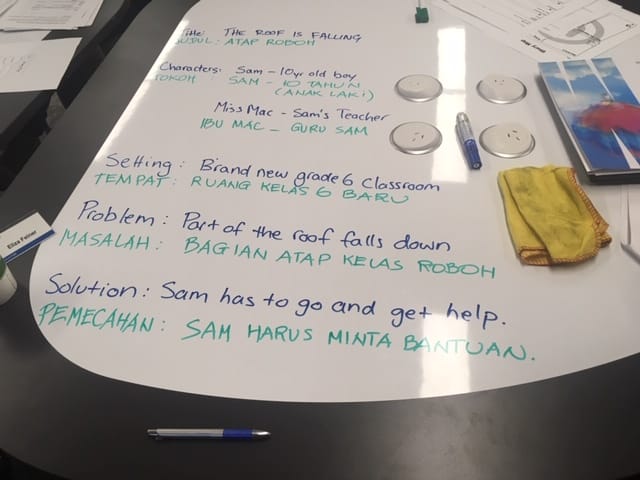 Title: THE ROOF IS FALLING
JUDUL: ATAP ROBOH
Characters: Sam - 10yr old boy
TOKOH : SAM - 10 TAHUN
(ANAK LAKI)
Miss Mac - Sam's Teacher
IBU MAC - GURU SAM
Setting: Brand new grade 6 Classroom
TEMPAT: RUANG KELAS 6 BARU
Problem: Part of the roof falls down
MASALAH: BAGIAN ATAP KELAS ROBOH
Solution: Sam has to go and get help.
PEMECAHAN: SAM HARUS MINTA BANTUAN.